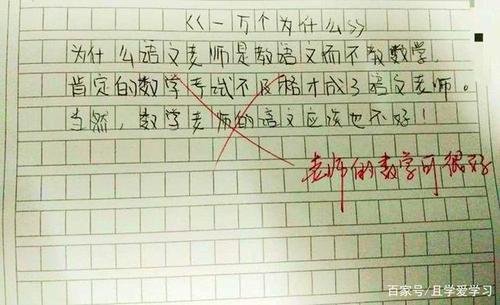 《一万个为什么》
为什么语文老师是教语文而不教数学,
肯定的数学考试不及格才成了语文老师。
当然,数学老师的语文应该也不好!
老师的数学可很好
百家号/且学爱学习